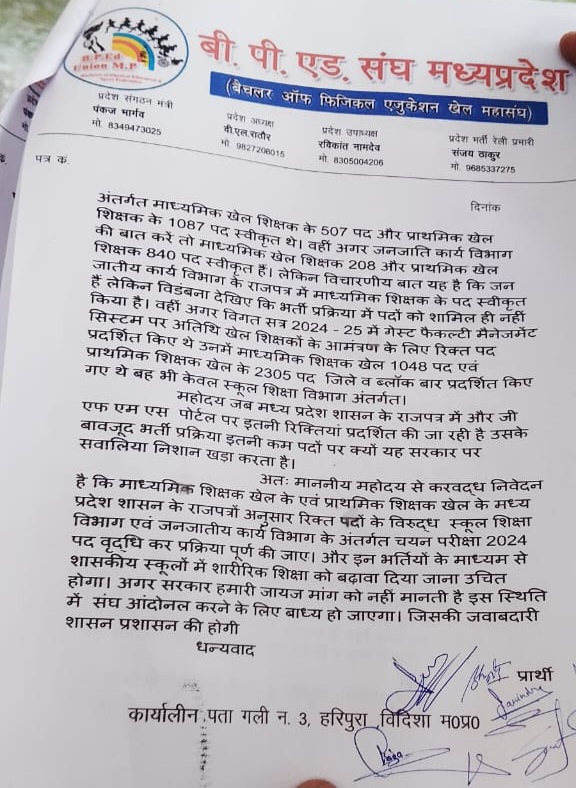 B.P.Ed
Union M.P.
बी. पी. एड. संघ मध्यप्रदेश
(बैचलर ऑफ फिजिकल एजुकेशन खेल महासंघ)
प्रदेश संगठन मंत्री
पंकज भार्गव
मो. 8349473025
प्रदेश अध्यक्ष
वी.एल.राठौर
मो. 9827206015
प्रदेश उपाध्यक्ष
रविकांत नामदेव
मो. 8305004206
प्रदेश भर्ती रैली प्रभारी
संजय ठाकुर
मो. 9685337275
पत्र क्र.
दिनांक
अंतर्गत माध्यमिक खेल शिक्षक के 507 पद और प्राथमिक खेल
शिक्षक के 1087 पद स्वीकृत थे। वहीं अगर जनजाति कार्य विभाग
की बात करें तो माध्यमिक खेल शिक्षक 208 और प्राथमिक खेल
शिक्षक 840 पद स्वीकृत हैं। लेकिन विचारणीय बात यह है कि जन
जातीय कार्य विभाग के राजपत्र में माध्यमिक शिक्षक के पद स्वीकृत
हैं लेकिन विडंबना देखिए कि भर्ती प्रक्रिया में पदों को शामिल ही नहीं
किया है। वहीं अगर विगत सत्र 2024 - 25 में गेस्ट फैकल्टी मैनेजमेंट
सिस्टम पर अतिथि खेल शिक्षकों के आमंत्रण के लिए रिक्त पद
प्रदर्शित किए थे उनमें माध्यमिक शिक्षक खेल 1048 पद एवं
प्राथमिक शिक्षक खेल के 2305 पद जिले व ब्लॉक बार प्रदर्शित किए
गए थे बह भी केवल स्कूल शिक्षा विभाग अंतर्गत।
महोदय जब मध्य प्रदेश शासन के राजपत्र में और जी
एफ एम एस पोर्टल पर इतनी रिक्तियां प्रदर्शित की जा रही है उसके
बावजूद भर्ती प्रक्रिया इतनी कम पदों पर क्यों यह सरकार पर
सवालिया निशान खड़ा करता है।
अतः माननीय महोदय से करवद्ध निवेदन
है कि माध्यमिक शिक्षक खेल के एवं प्राथमिक शिक्षक खेल के मध्य
प्रदेश शासन के राजपत्रों अनुसार रिक्त पदों के विरुद्ध स्कूल शिक्षा
विभाग एवं जनजातीय कार्य विभाग के अंतर्गत चयन परीक्षा 2024
पद वृद्धि कर प्रक्रिया पूर्ण की जाए। और इन भर्तियों के माध्यम से
शासकीय स्कूलों में शारीरिक शिक्षा को बढ़ावा दिया जाना उचित
होगा। अगर सरकार हमारी जायज मांग को नहीं मानती है इस स्थिति
में संघ आंदोनल करने के लिए बाध्य हो जाएगा। जिसकी जवाबदारी
शासन प्रशासन की होगी
धन्यवाद
प्रार्थी
कार्यालीन पता गली न. 3, हरिपुरा विदिशा म0प्र0